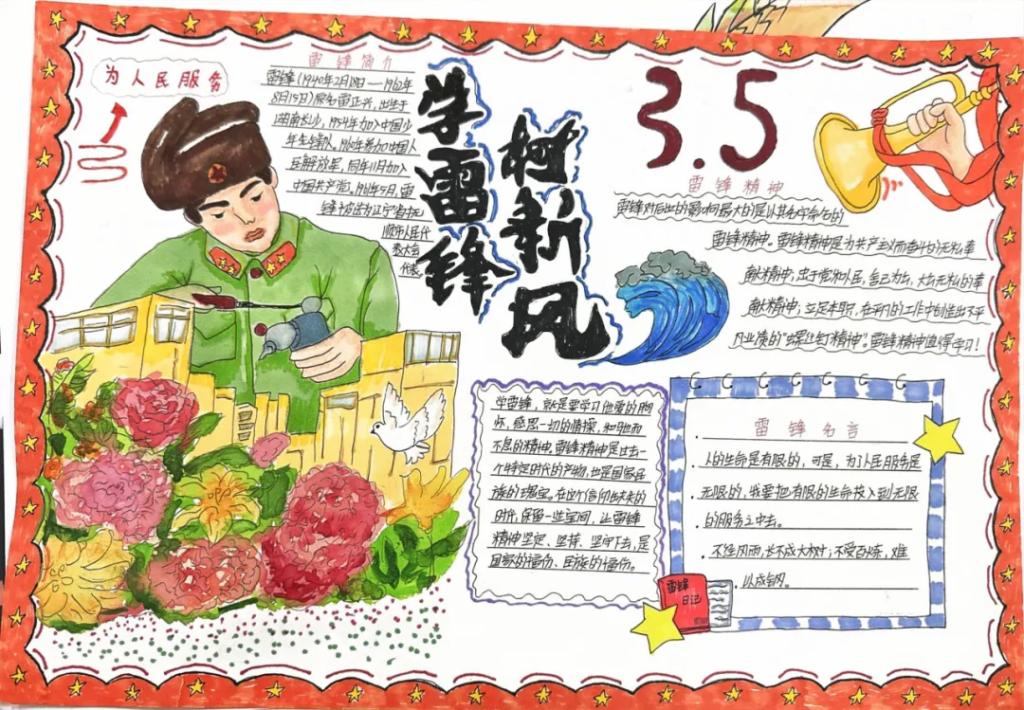 为人民服务
雷锋简介
雷锋(1940年12月18日——1962年
8月15日)原名雷正兴,出生于
湖南长沙,1954年加入中国少
年先锋队。1960年参加中国人
民解放军,同年11月加入
中国共产党。1961年5月,雷
锋
辽宁省抚
顺市人民代
表大会
代表。
学雷锋
树新风
3.5
雷锋精神
雷锋对后世的影响最大的是以其名字命名的
雷锋精神。雷锋精神是为共产主义而奋斗的无私奉
献精神,忠于党和人民,舍己为公,大公无私的奉
献精神,立足本职,在平凡的工作中创造出不平
凡业绩的“螺丝钉精神”。雷锋精神值得学习!
学雷锋,就是要学习他爱的胸
怀,感恩一切的情操,和
不息的精神。雷锋精神是过去一
个特定时代的产物,也是国家民
族的瑰宝。在这个信仰缺失的
时代,保留一些空间,让雷锋
精神坚定、坚持、坚守下去,是
国家的福份、民族的福份。
雷锋名言
人的生命是有限的,可是,为了人民服务是
无限的,我要把有限的生命投入到无限
的服务之中去。
不经风雨,长不成大树;不受百炼,难
以成钢。
雷锋
日记